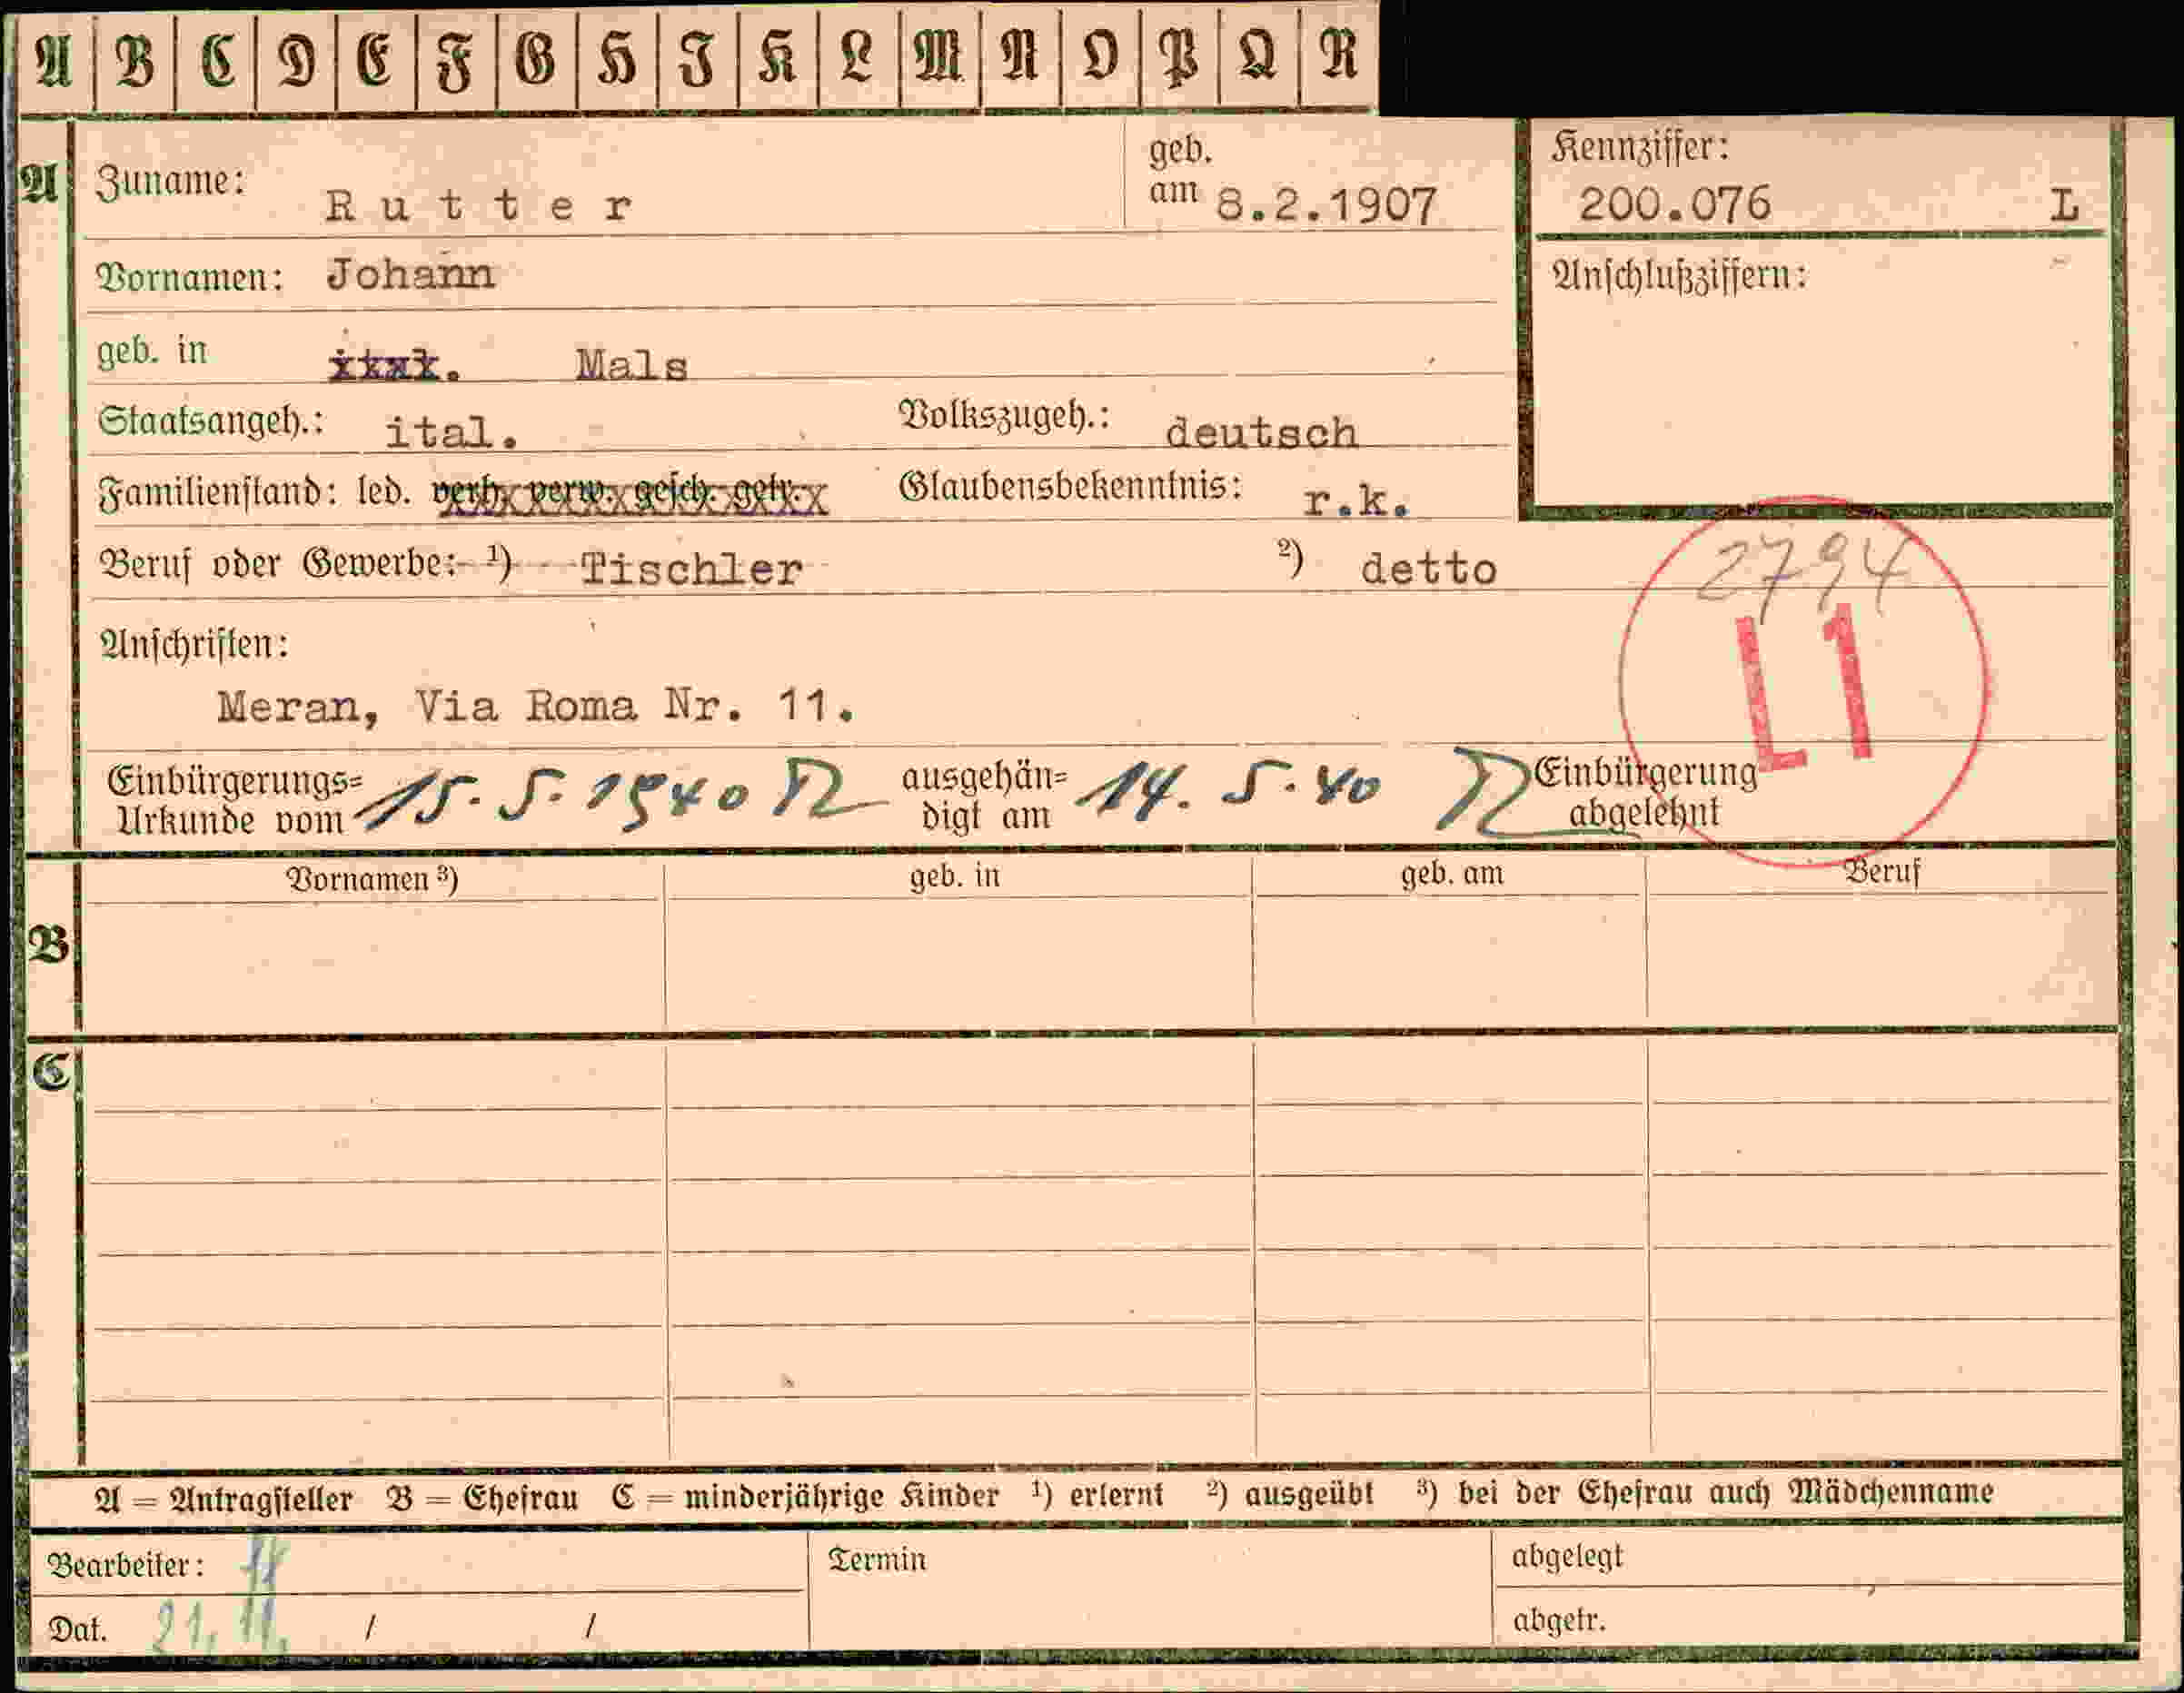 A B C D E F G H I K L M N O P Q R
A
Zuname: Rutter
geb. am 8.2.1907
Kennziffer:
200.076 L
Vornamen: Johann
Anschlußziffern:
geb. in Mals
Staatsangeh.: ital. Volkszugeh.: deutsch
Familienstand: led. verh. verw. gesch. getr. Glaubensbekenntnis: r.k.
Beruf oder Gewerbe: ¹) Tischler ²) detto
2794
L1
Anschriften:
Meran, Via Roma Nr. 11.
Einbürgerungs= ausgehän= Einbürgerung
Urkunde vom 15.5.1940 digt am 14.5.40 abgelehnt
Vornamen ³) geb. in geb. am Beruf
B
C
A = Antragsteller B = Ehefrau C = minderjährige Kinder ¹) erlernt ²) ausgeübt ³) bei der Ehefrau auch Mädchenname
Bearbeiter: Termin abgelegt
Dat. 21. 11. / / abgetr.